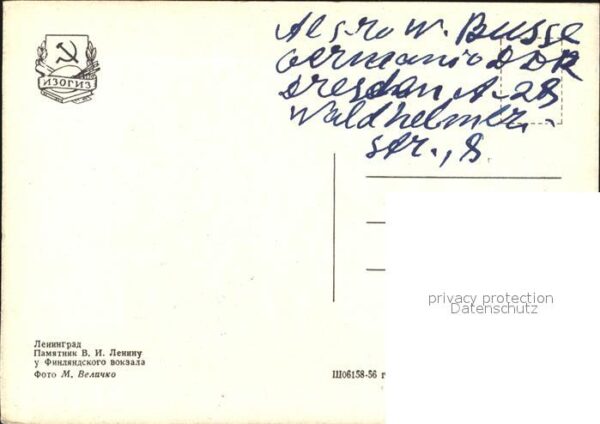 Al gro W. Busse
Germania DDR
Dresden A-28
Waldhelmer.
str., 8.
ИЗОГИЗ
privacy protection
Datenschutz
Ленинград
Памятник В. И. Ленину
у Финляндского вокзала
Фото М. Величко
Ш06158-56 г